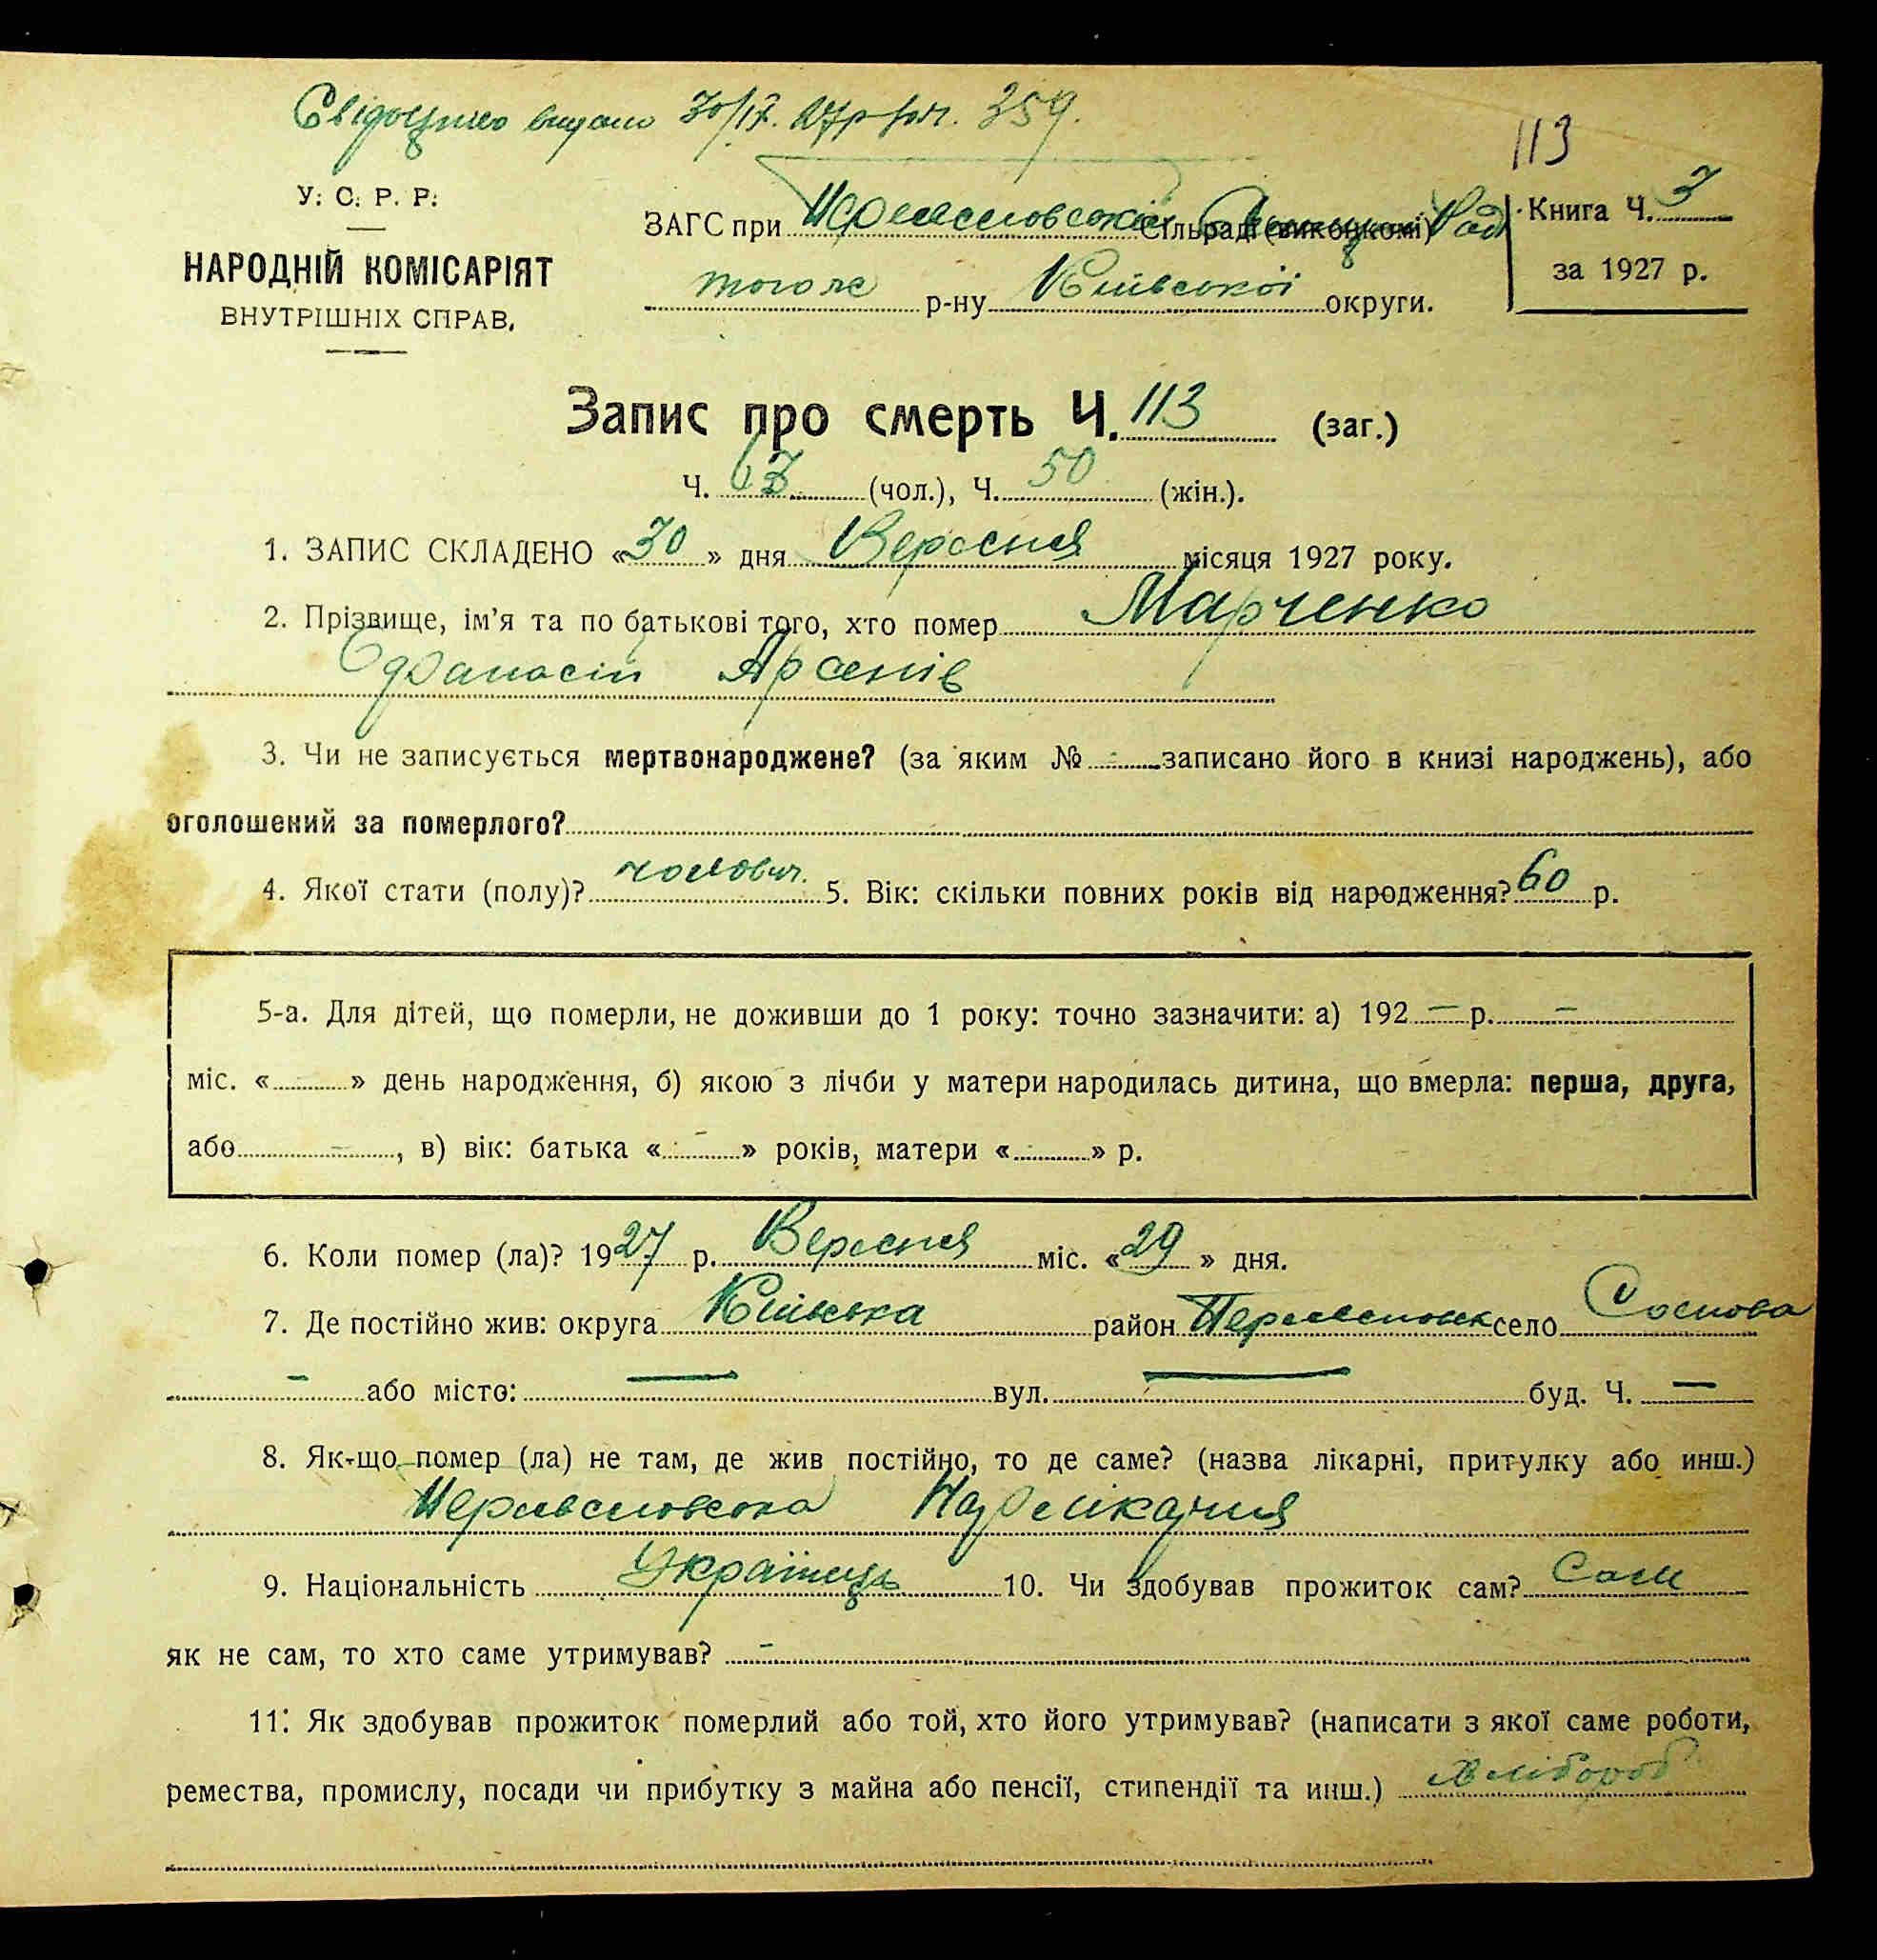 Свідоцтво видано 30/IX. 27 р. 359.
113
У. С. Р. Р.
НАРОДНІЙ КОМІСАРІЯТ
ВНУТРІШНІХ СПРАВ.
ЗАГС при Переяславській Сільраді (виконкомі)
того же р-ну Київської округи.
Книга Ч. 3
за 1927 р.
Запис про смерть Ч. 113 (заг.)
Ч. 63 (чол.), Ч. 50 (жін.).
1. ЗАПИС СКЛАДЕНО «30» дня Вересня місяця 1927 року.
2. Прізвище, ім'я та по батькові того, хто помер Марченко
Офанасій Арсенів
3. Чи не записується мертвонароджене? (за яким № - записано його в книзі народжень), або
оголошений за померлого?
4. Якої стати (полу)? чоловіч. 5. Вік: скільки повних років від народження? 60 р.
5-а. Для дітей, що померли, не доживши до 1 року: точно зазначити: а) 192 – р. –
міс. « » день народження, б) якою з лічби у матери народилась дитина, що вмерла: перша, друга,
або – , в) вік: батька « - » років, матери « - » р.
6. Коли помер (ла)? 1927 р. Вересня міс. «29» дня.
7. Де постійно жив: округа Київська район Переяславськ село Соснова
– або місто: — вул. — буд. Ч. —
8. Як-що помер (ла) не там, де жив постійно, то де саме? (назва лікарні, притулку або инш.)
Переяславська Райлікарня
9. Національність Українець 10. Чи здобував прожиток сам? Сам
як не сам, то хто саме утримував? –
11. Як здобував прожиток померлий або той, хто його утримував? (написати з якої саме роботи,
ремества, промислу, посади чи прибутку з майна або пенсії, стипендії та инш.) Хлібороб